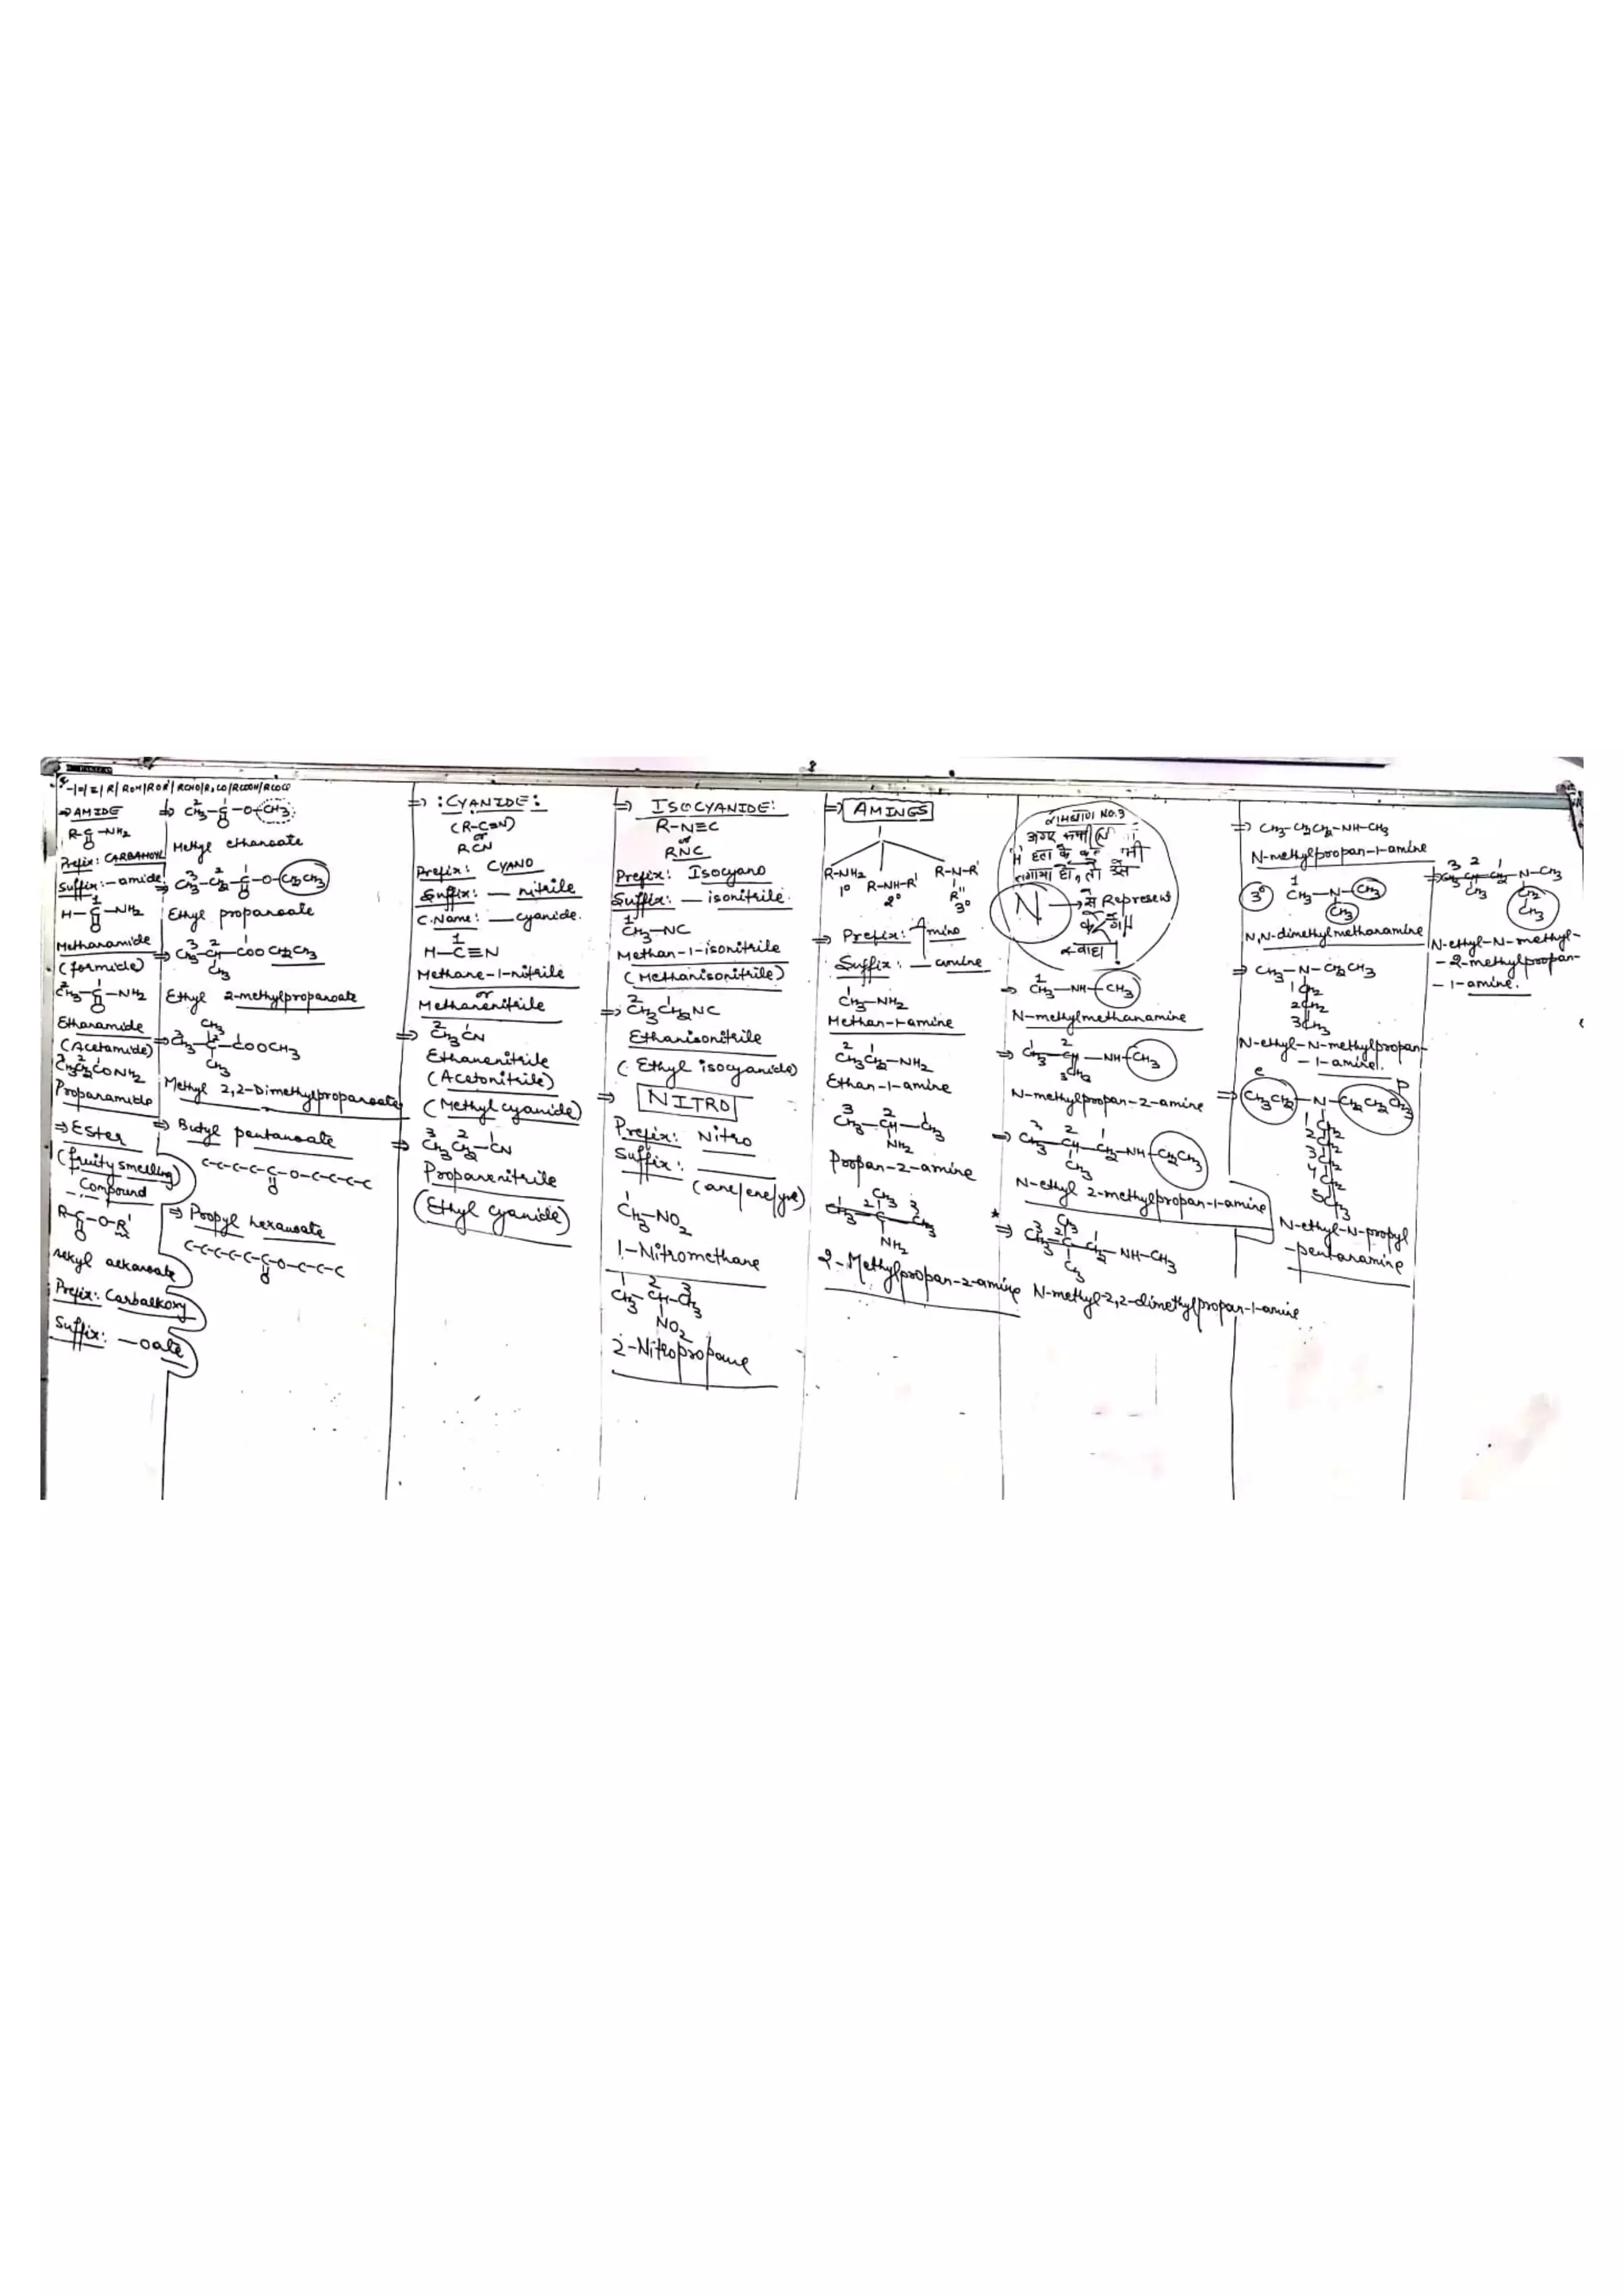 -/=/≡/R/ROH/ROR'/RCHO/R2CO/RCOOH/RCOCl
⇒ AMIDE
R-C-NH2
O
Prefix: CARBAMOYL
Suffix:- amide
1
H-C-NH2
O
Methanamide
(formide)
2 1
CH3-C-NH2
O
Ethanamide
(Acetamide)
3 2 1
CH3CH2CONH2
Propanamide
⇒ Ester
(fruity smelling)
Compound
R-C-O-R'
O
Alkyl alkanoate
Prefix: Carbalkoxy
Suffix: —oate
⇒ CH3-C-O-CH3
2 1
O
Methyl ethanoate
3 2 1
⇒ CH3-CH2-C-O-CH2CH3
O
Ethyl propanoate
3 2 1
⇒ CH3-CH-COOCH2CH3
CH3
Ethyl 2-methylpropanoate
CH3
3 2 1
⇒ CH3-C-COOCH3
CH3
Methyl 2,2-Dimethylpropanoate
⇒ Butyl pentanoate
C-C-C-C-C-O-C-C-C-C
O
⇒ Propyl hexanoate
C-C-C-C-C-C-O-C-C-C
O
⇒ :CYANIDE:
(R-C≡N)
or
RCN
Prefix: CYANO
Suffix: — nitrile
C.Name: — cyanide.
1
H-C≡N
Methane-1-nitrile
or
Methanenitrile
2 1
⇒ CH3CN
Ethanenitrile
(Acetonitrile)
(Methyl cyanide)
3 2 1
⇒ CH3CH2-CN
Propanenitrile
(Ethyl cyanide)
⇒ ISOCYANIDE:
R-N≡C
or
RNC
Prefix: Isocyano
Suffix: — isonitrile.
1
CH3-NC
Methan-1-isonitrile
(Methanisonitrile)
2 1
⇒ CH3CH2NC
Ethanisonitrile
(Ethyl isocyanide)
⇒ NITRO
Prefix: Nitro
Suffix: ———
(ane/ene/yne)
1
CH3-NO2
1-Nitromethane
1 2 3
CH3-CH-CH3
NO2
2-Nitropropane
⇒ AMINES
R-NH2 R-NH-R' R-N-R'
1° 2° R'' 3°
⇒ Prefix: Amino
Suffix: — amine
1
CH3-NH2
Methan-1-amine
2 1
CH3CH2-NH2
Ethan-1-amine
3 2 1
CH3-CH-CH3
NH2
Propan-2-amine
CH3
1 2 3
CH3-C-CH3
NH2
2-Methylpropan-2-amine
NO.3
अगर कभी N
तो उसे
N → से Represent
1
⇒ CH3-NH-CH3
N-methylmethanamine
1 2
⇒ CH3-CH-NH-CH3
3CH3
N-methylpropan-2-amine
3 2 1
⇒ CH3-CH-CH2-NH-CH2CH3
CH3
N-ethyl 2-methylpropan-1-amine
CH3
3 2 1
* ⇒ CH3-C-CH2-NH-CH3
CH3
N-methyl-2,2-dimethylpropan-1-amine
⇒ CH3-CH2CH2-NH-CH3
N-methylpropan-1-amine
3° 1
CH3-N-CH3
CH3
N,N-dimethylmethanamine
⇒ CH3-N-CH2CH3
1CH2
2CH2
3CH3
N-ethyl-N-methylpropan-
-1-amine.
e p
⇒ CH3CH2-N-CH2CH2CH3
1CH2
2CH2
3CH2
4CH2
5CH3
N-ethyl-N-propyl
-pentanamine
3 2 1
⇒ CH3-CH-CH2-N-CH3
CH3 CH2
CH3
N-ethyl-N-methyl-
-2-methylpropan-
-1-amine.